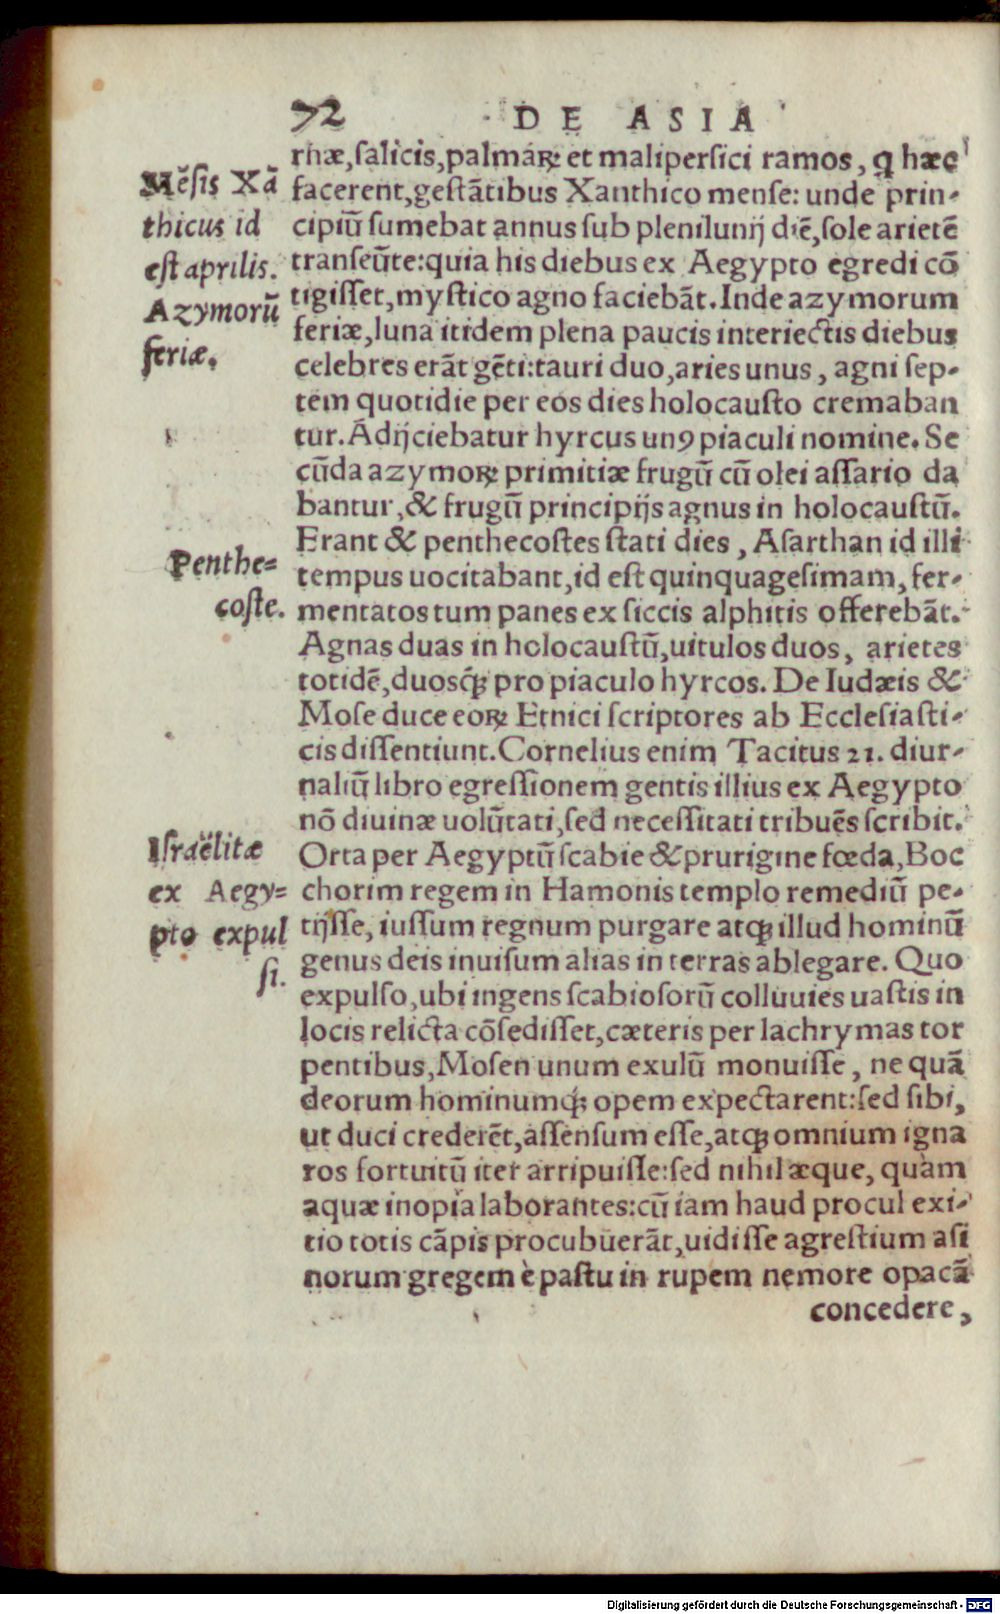 72 DE ASIA
rhæ, ſalicis, palmaꝝ et malipersici ramos, q hæc
facerent, geſtãtibus Xanthico mense: unde prin-
cipiũ ſumebat annus ſub plenilunij diẽ, ſole arietẽ
tranſeũte: quia his diebus ex Aegypto egredi cõ
tigiſſet, myſtico agno faciebãt. Inde azymorum
feriæ, luna itidem plena paucis interiectis diebus
celebres erãt gẽti: tauri duo, aries unus, agni ſep-
tem quotidie per eos dies holocauſto cremaban
tur. Adijciebatur hyrcus unꝰ piaculi nomine. Se
cũda azymoꝝ primitiæ frugũ cũ olei aſſario da
bantur, & frugũ principijs agnus in holocauſtũ.
Erant & penthecoſtes ſtati dies, Aſarthan id illi
tempus uocitabant, id eſt quinquageſimam, fer-
mentatos tum panes ex ſiccis alphitis offerebãt.
Agnas duas in holocauſtũ, uitulos duos, arietes
totidẽ, duosq́ꝫ pro piaculo hyrcos. De Iudæis &
Moſe duce eoꝝ Etnici ſcriptores ab Eccleſiaſti-
cis diſſentiunt. Cornelius enim Tacitus 21. diur-
naliũ libro egreſſionem gentis illius ex Aegypto
nõ diuinæ uolũtati, ſed neceſſitati tribuẽs ſcribit.
Orta per Aegyptũ ſcabie & prurigine fœda, Boc
chorim regem in Hamonis templo remediũ pe-
tijſſe, iuſſum regnum purgare atqꝫ illud hominũ
genus deis inuiſum alias in terras ablegare. Quo
expulſo, ubi ingens ſcabioſorũ colluuies uaſtis in
locis relicta cõſediſſet, cæteris per lachrymas tor
pentibus, Moſen unum exulũ monuiſſe, ne quã
deorum hominumq́ꝫ opem expectarent: ſed ſibi,
ut duci crederẽt, aſſenſum eſſe, atqꝫ omnium igna
ros fortuitũ iter arripuiſſe: ſed nihil æque, quàm
aquæ inopia laborantes: cũ iam haud procul exi-
tio totis cãpis procubuerãt, uidiſſe agreſtium aſi
norum gregem è paſtu in rupem nemore opacã
concedere,
Mẽſis Xã
thicus id
eſt aprilis.
Azymorũ
feriæ.
Penthe=
coſte.
Iſraëlitæ
ex Aegy=
pto expul
ſi.
Digitalisierung gefördert durch die Deutsche Forschungsgemeinschaft - DFG